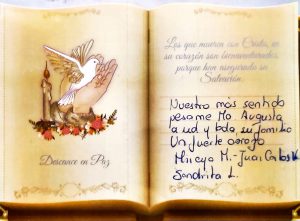 Descanse en Paz
Los que mueren con Cristo, en
su corazón son bienaventurados,
porque han asegurado su
Salvación.
Nuestro más sentido
pesame Ma. Augusta
a ud y toda su familia
Un fuerte abrazo
Mireya M.-Juan Carlos
Sandrita L.